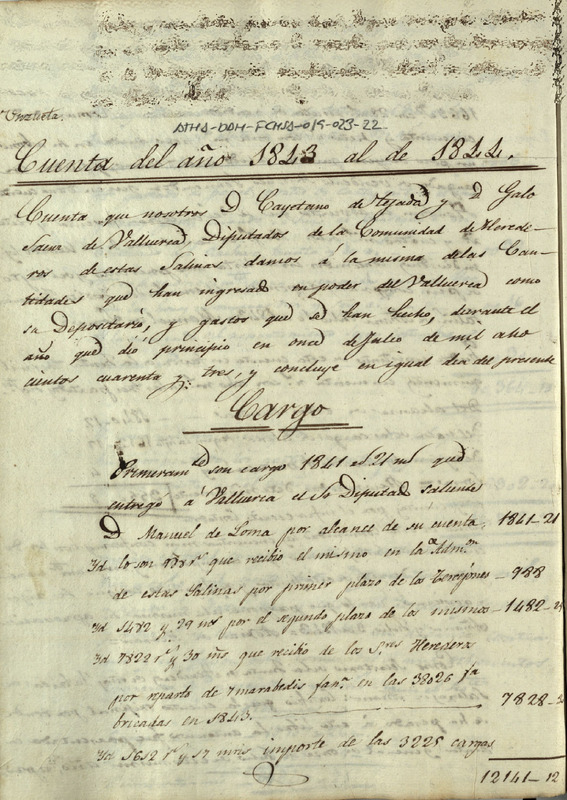 Unzueta.
ATHA-DAH-FCHSA-015-023-22
Cuenta del año 1843 al de 1844.
Cuenta que nosotros D Cayetano de tejada y D Galo
Saenz de Valluerca, Diputados de la Comunidad de Herede-
ros de estas Salinas damos á la misma de las Can-
tidades que han ingresado en poder del Valluerca como
su Depositario, y gastos que se han hecho, durante el
año que dió principio en once de Julio de mil ocho
cientos cuarenta y tres, y concluye en igual dia del presente
Cargo
Primeramte son cargo 1841 r 21 ms que
entregó á Valluerca el Sr Diputado saliente
D Manuel de Loma por alcance de su cuenta, 1841-21
Yd lo son 988 rs que recibio el mismo en la Admon
de estas Salinas por primer plazo de los Torrejones - 988
Yd 1482 y 29 ms por el segundo plazo de los mismos - 1482-29
Yd 7828 rs y 30 ms que recibo de los Sres Herederos
por reparto de 7 marabedis fana en las 38026 fa
bricadas en 1843. 7828-30
Yd 1612 rs y 17 mrs importe de las 3225 cargas
12141-12